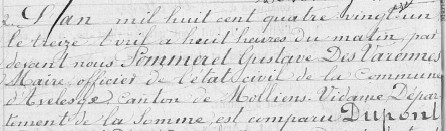 L'an mil huit cent quatre vingt un
le treize Avril a huit heures du matin, par
devant nous Pommeret Gustave Des Varennes
Maire officier de l'état civil de la Commune
d'Avelesge canton de Molliens-Vidame Dépar-
tement de la Somme est comparu Dupont